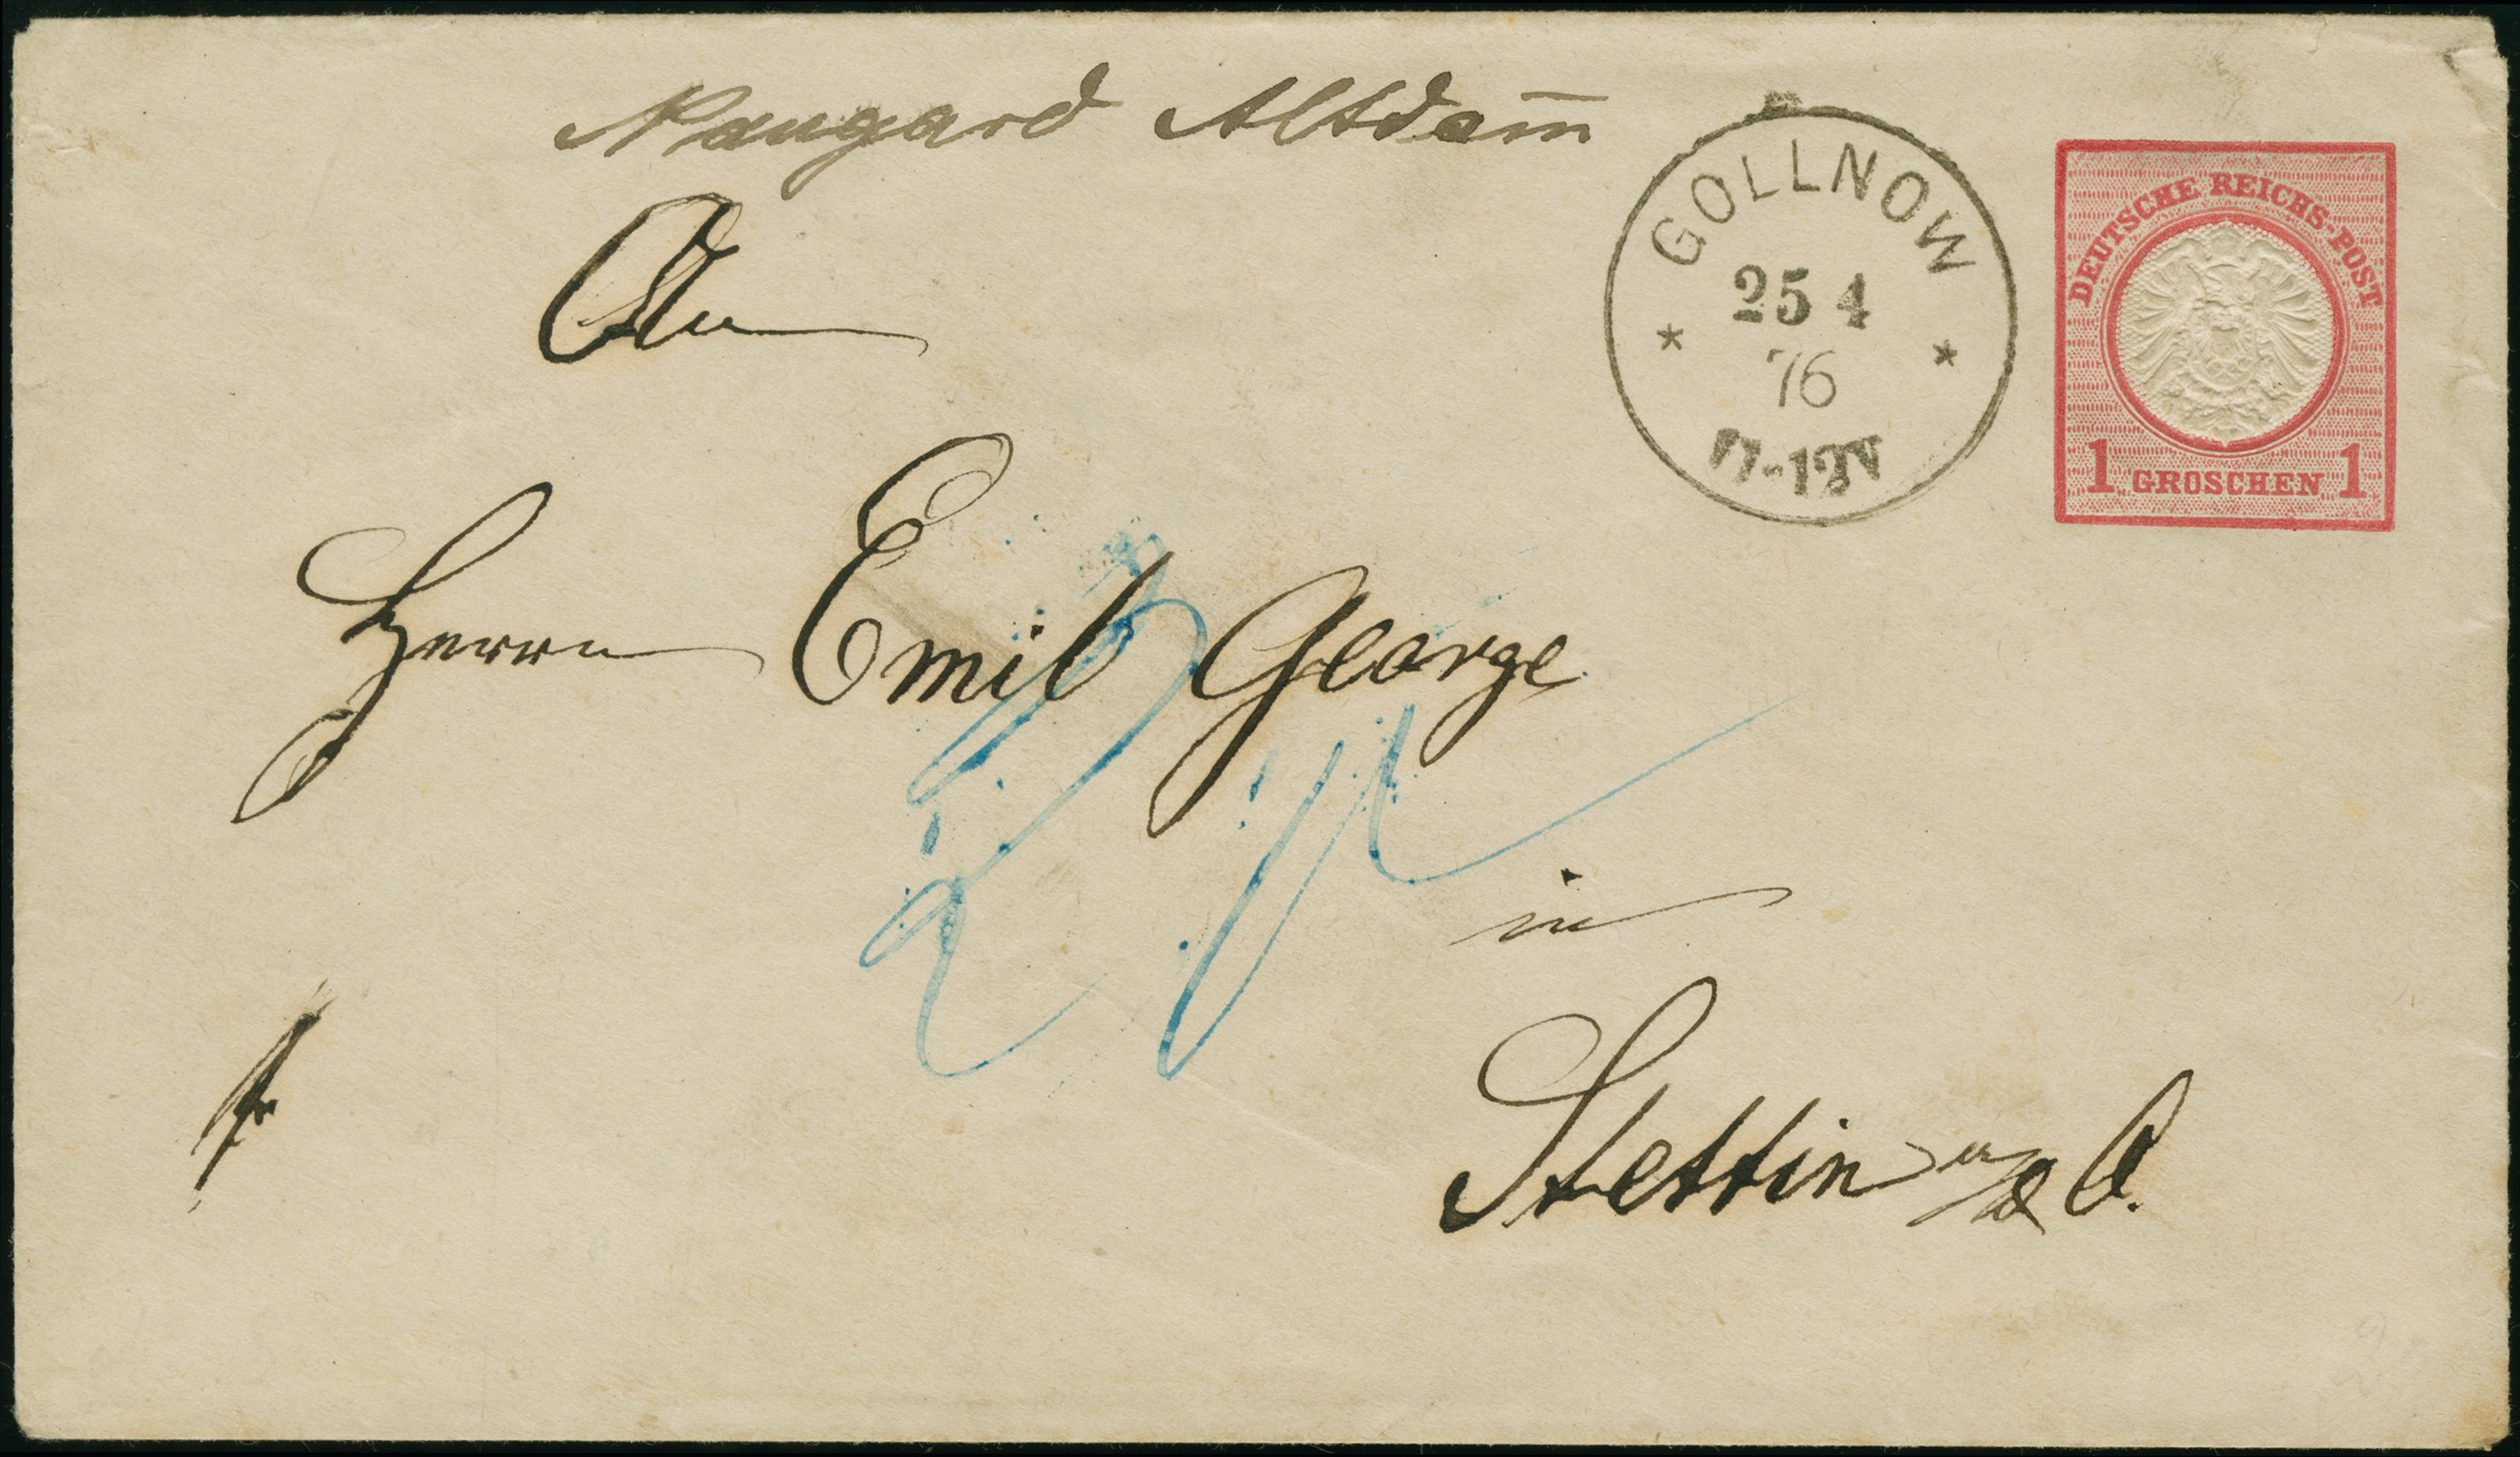 Naugard Altdam̅
GOLLNOW
25 4
76
11-12V
DEUTSCHE REICHS-POST
1 GROSCHEN 1
An
Herrn Emil George
in
Stettin a/d O.
fr